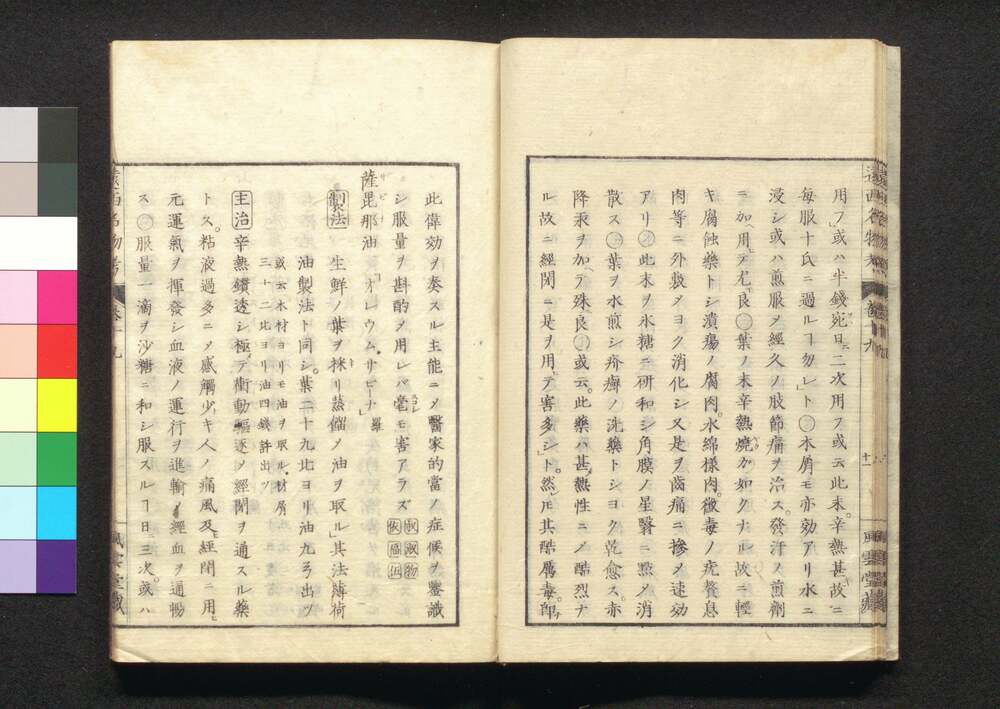 用フ或ハ半錢宛日二次用フ或云此末辛熱甚故ニ
每服十氏ニ過ルヿ勿レト〇木屑モ亦効アリ水ニ
浸シ或ハ煎服メ經久ノ肢節痛ヲ治ス發汗ノ煎劑
ニ加ヘ用テ尤良〇葉ノ末辛熱燒カ如クナル故ニ輕
キ腐蝕藥トシ潰瘍ノ腐肉水綿樣肉黴毒ノ疣贅息
肉等ニ外敷メヨク消化シ又是ヲ齒痛ニ擦メ速効
アリ〇此末ヲ氷糖ニ研和シ角膜ノ星翳ニ點メ消
散ス〇葉ヲ水煎シ疥癬ノ洗藥トシヨク乾愈ス亦
降汞ヲ加ヘテ殊良〇或云此藥ハ甚熱性ニメ酷烈ナ
ル故ニ經閉ニ是ヲ用テ害多シト然ㇾ𪜈其酷厲毒即
此偉効ヲ奏スル主能ニメ醫家的當ノ症候ヲ鑒識
シ服量ヲ斟酌メ用レバ毫モ害アラズ
薩毘那油「オレウムサビーナ」羅
製法 生鮮ノ葉ヲ採リ蒸餾メ油ヲ取ル其法薄荷
油製法ト同シ葉二十九比ヨリ油九弓出ツ
或云木材ヨリモ油ヲ取ル材屑
三十二比ヨリ油四錢許出ツ
主治 辛熱鑽透シ極テ衝動驅逐メ經閉ヲ通スル藥
トス粘液過多ニメ感觸少キ人ノ痛風及經閉ニ用
元運氣ヲ揮發シ血液ノ運行ヲ進輸メ經血ヲ通暢
ス〇服量一滴ヲ沙糖ニ和シ服スルヿ日三次或ハ
十一